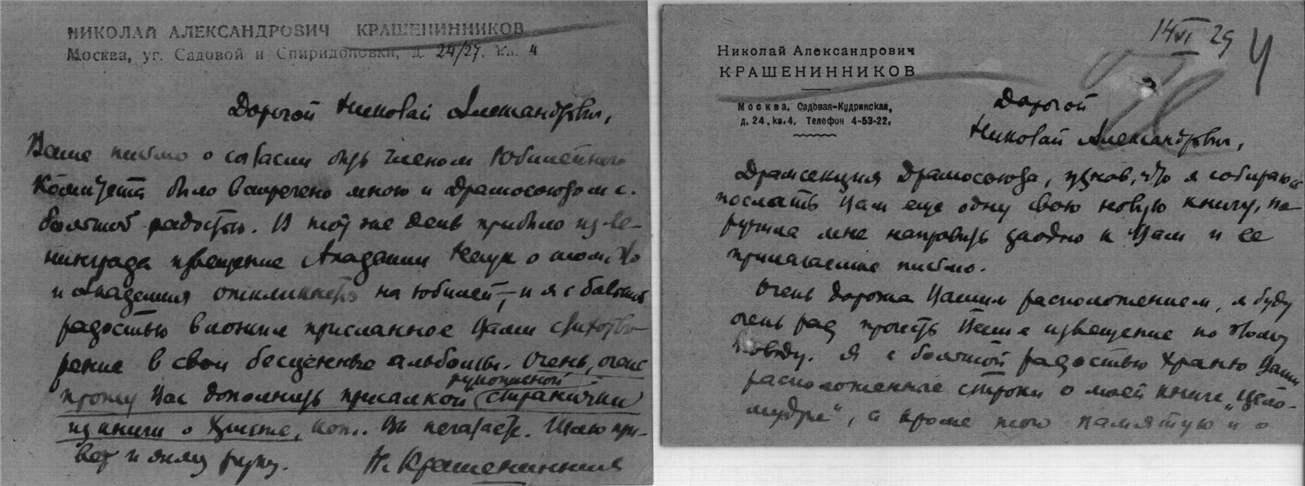 НИКОЛАЙ АЛЕКСАНДРОВИЧ КРАШЕНИННИКОВ
Москва, уг. Садовой и Спиридоновки, д. 24/27. кв. 4
Дорогой Николай Александрович,
Ваше письмо о согласии быть членом Юбилейного
Комитета было встречено мною и Драмосоюзом с
большой радостью. В тот же день прибыло из Ле-
нинграда извещение Академии Наук о том, что
и Академия откликнется на юбилей, – и я с большой
радостью вложил присланное Вами стихотво-
рение в свои бесценные альбомы. Очень, очень
прошу Вас дополнить присылкой рукописной странички
из книги о Христе, кот. Вы печатаете. Шлю при-
вет и жму руку.
Н. Крашенинников
14 VI 29
Николай Александрович
КРАШЕНИННИКОВ
Москва, Садовая-Кудринская,
д. 24, кв. 4. Телефон 4-53-22,
Дорогой
Николай Александрович,
Драмсекция Драмосоюза, узнав, что я собираюсь
послать Вам еще одну свою новую книгу, по-
ручила мне направить заодно к Вам и ее
прилагаемое письмо.
Очень дорожа Вашим расположением, я буду
очень рад прочесть Ваше извещение по этому
поводу. Я с большой радостью храню Ваши
расположенные строки о моей книге „Цело-
мудрие“, а кроме того памятую и о